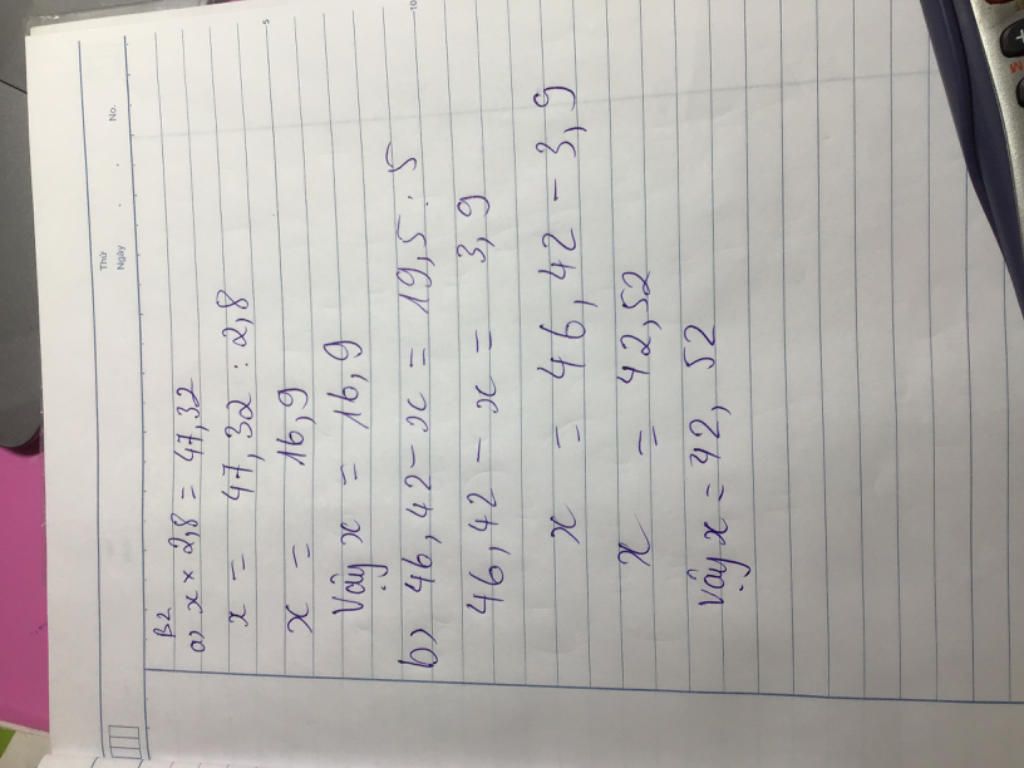 Thứ
Ngày . . No.
5
10
B2
a) x × 2,8 = 47,32
x = 47,32 : 2,8
x = 16,9
Vậy x = 16,9
b) 46,42 - x = 19,5 : 5
46,42 - x = 3,9
x = 46,42 - 3,9
x = 42,52
Vậy x = 42,52
+
M